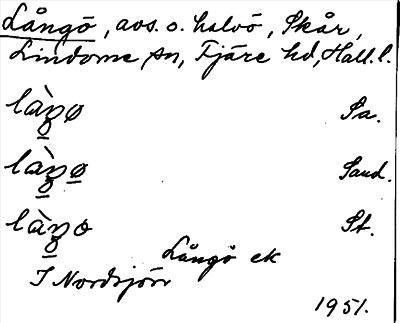 Långö, avs. o. halvö, Skår,
Lindome sn, Fjäre hd, Hall. l.
làŋø Sa.
làŋø Sand.
làŋo St.
Långö ek
I Nordsjön
1951.